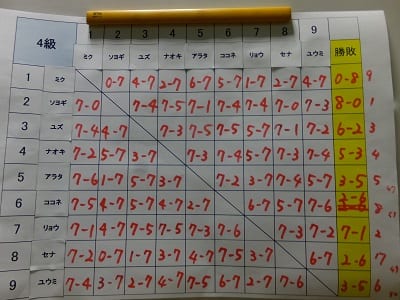 4級 1 2 3 4 5 6 7 8 9 勝敗
ミク ソヨギ ユズ ナオキ アラタ ココネ リョウ セナ ユウミ
1 ミク 0-7 4-7 2-7 6-7 5-7 1-7 2-7 4-7 0-8 9
2 ソヨギ 7-0 7-4 7-5 7-1 7-4 7-4 7-0 7-3 8-0 1
3 ユズ 7-4 4-7 7-3 7-5 7-5 5-7 7-1 7-2 6-2 3
4 ナオキ 7-2 5-7 3-7 7-3 7-4 5-7 7-3 7-4 5-3 4
5 アラタ 7-6 1-7 5-7 3-7 7-2 3-7 7-4 5-7 3-5 5
6 ココネ 7-5 4-7 5-7 4-7 2-7 6-7 5-7 7-6 8
7 リョウ 7-1 4-7 7-5 7-5 7-3 7-6 7-3 7-2 7-1 2
8 セナ 7-2 0-7 1-7 3-7 4-7 7-5 3-7 6-7 2-6 7
9 ユウミ 7-4 3-7 2-7 4-7 7-5 6-7 2-7 7-6 3-5 6